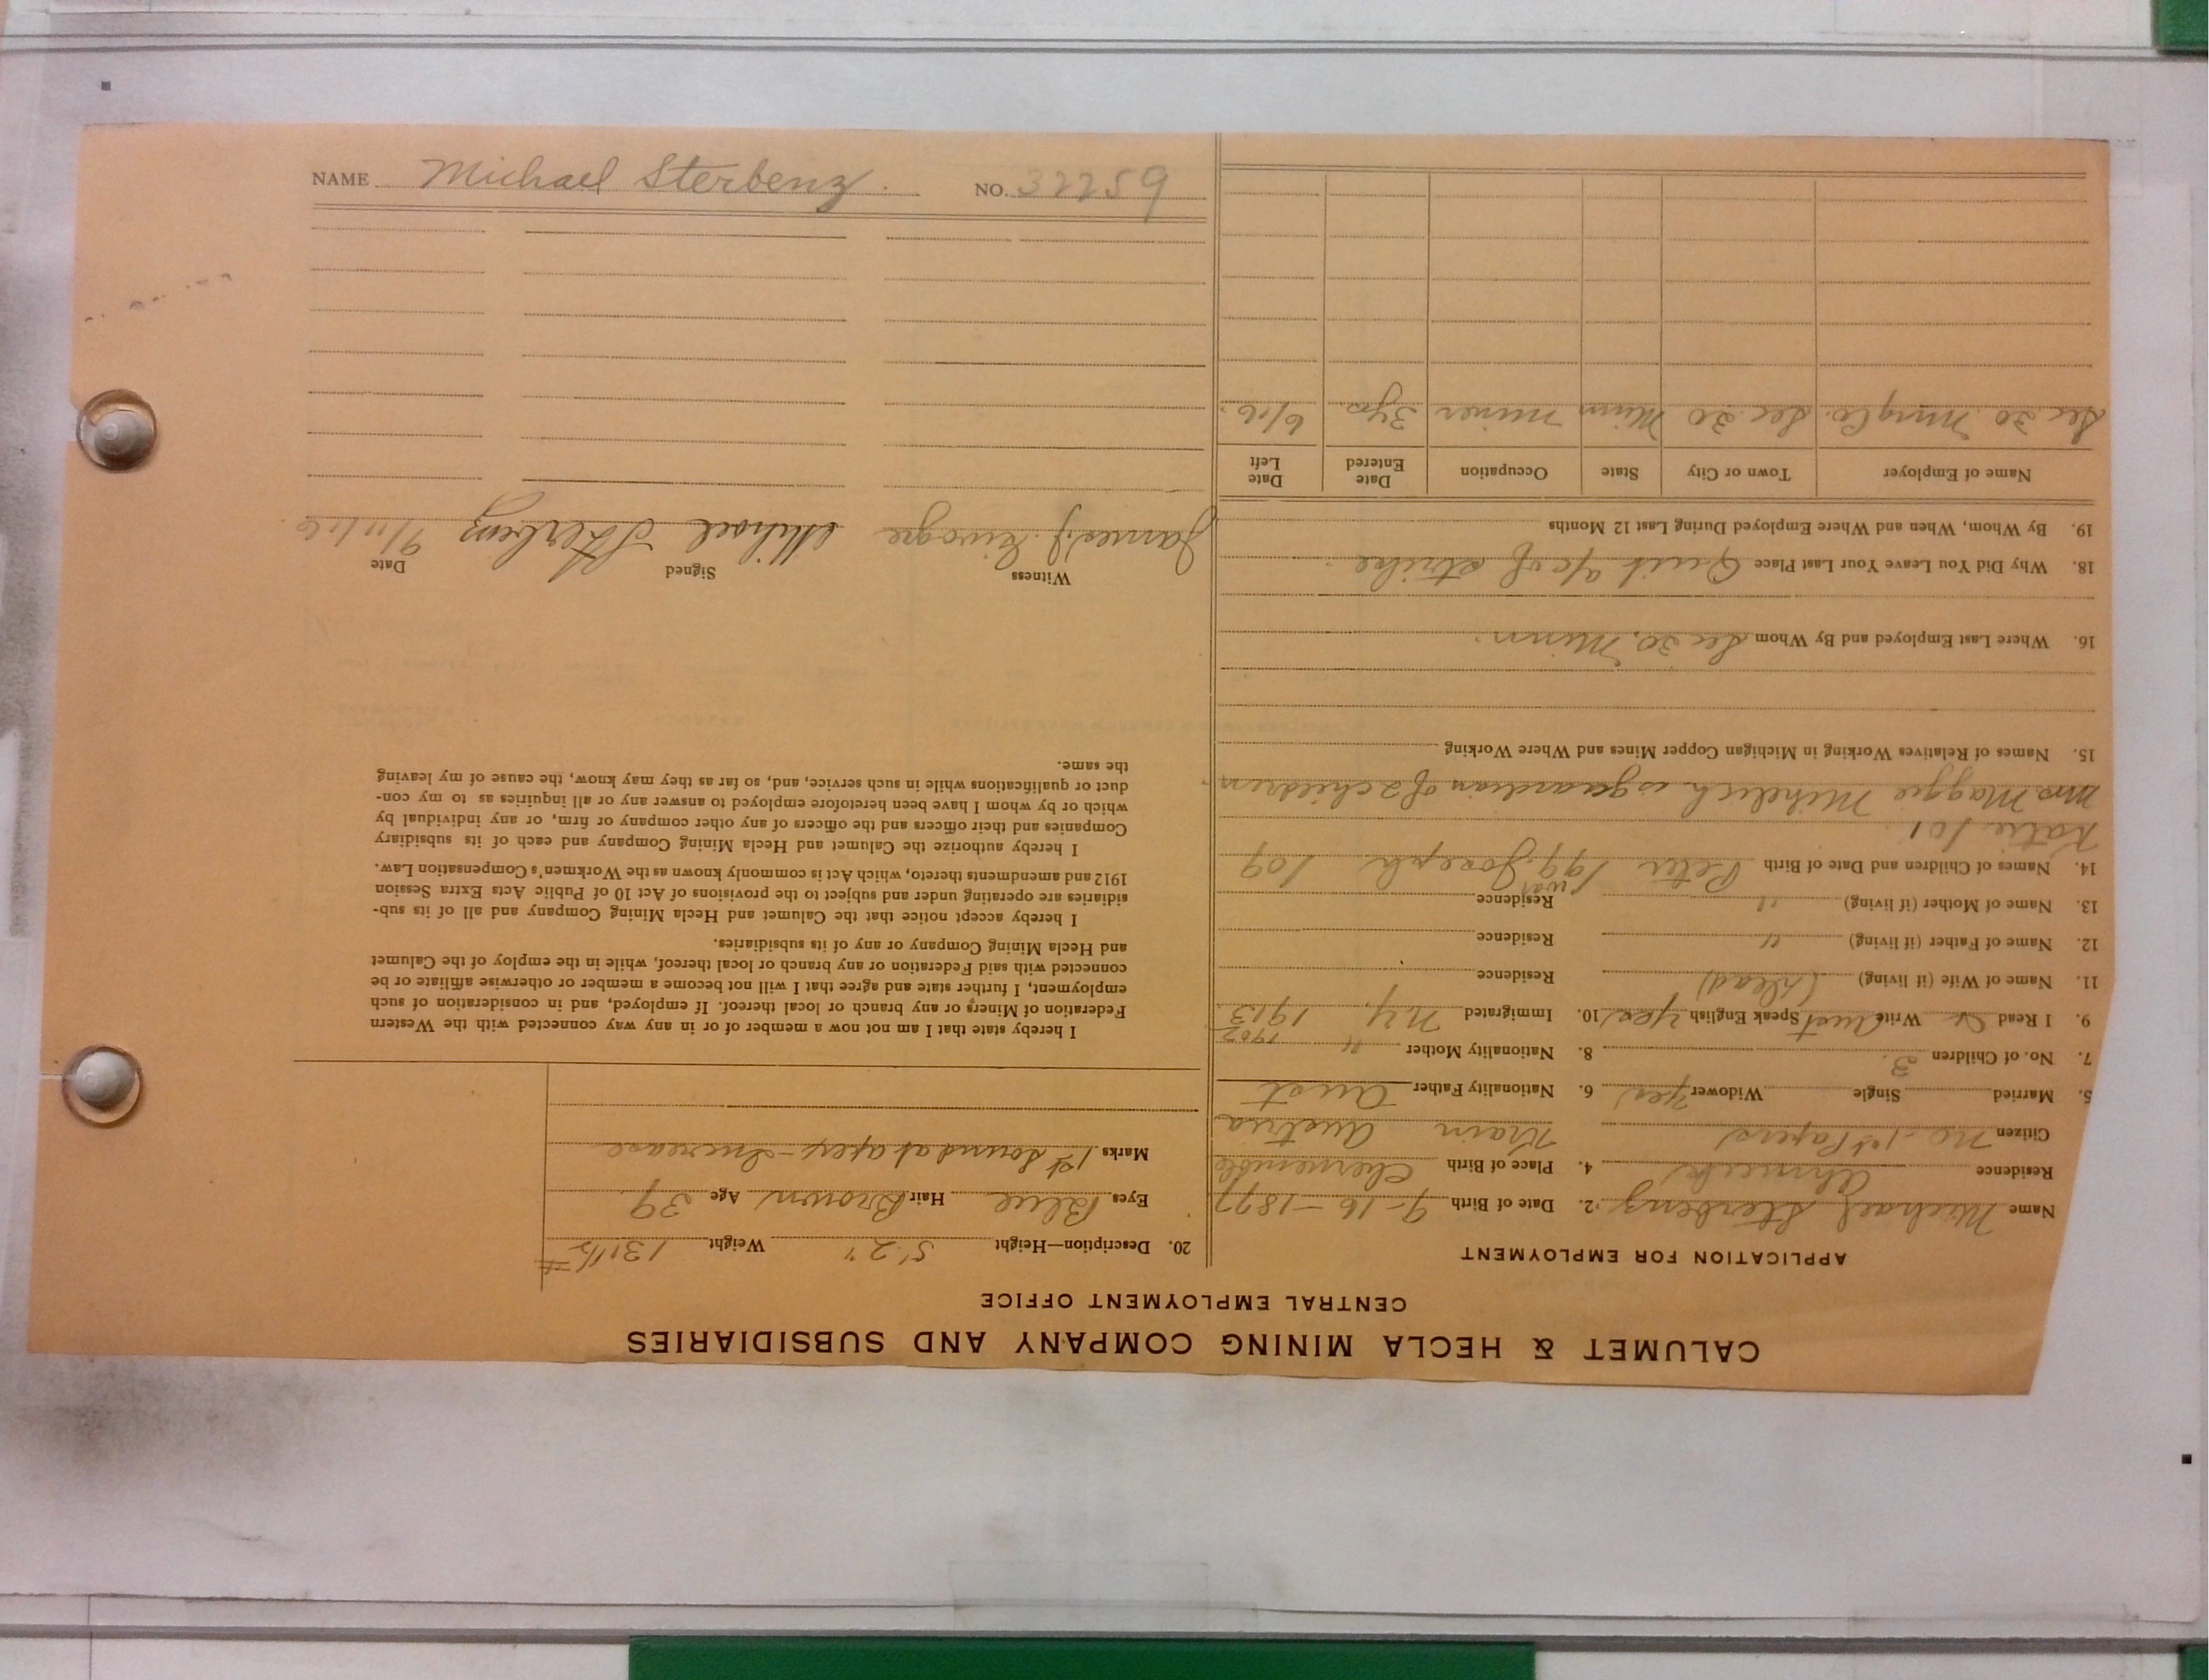 NAME Michael Sterbenz. NO. 32259
CALUMET & HECLA MINING COMPANY AND SUBSIDIARIES
CENTRAL EMPLOYMENT OFFICE
APPLICATION FOR EMPLOYMENT
Name Michael Sterbenz 2. Date of Birth 9-16-1877
Residence Ahmeek 4. Place of Birth
Citizen no. 1st Papers Krain Austria
5. Married Single Widower yes 6. Nationality Father Aust
7. No. of Children 3. 8. Nationality Mother " 1902
9. I Read & Write Aust Speak English yes 10. Immigrated N.Y. 1913
11. Name of Wife (if living) (dead) Residence
12. Name of Father (if living) " Residence
13. Name of Mother (if living) " Residence
14. Names of Children and Date of Birth Peter / 99. Joseph / 09
Katie / 01
Mrs Maggie Mihelich is guardian of 2 children
15. Names of Relatives Working in Michigan Copper Mines and Where Working
16. Where Last Employed and By Whom Sec 30, Minn.
18. Why Did You Leave Your Last Place Quit a/c of strike
19. By Whom, When and Where Employed During Last 12 Months
Name of Employer Town or City State Occupation Date Entered Date Left
Sec. 30 Mng Co. Sec 30 Minn miner 3 yrs. 6/16.
20. Description—Height 5'.2" Weight 131 1/2 #
Eyes Blue Hair Brown Age 39
Marks 1st Sound at apex - Increase
I hereby state that I am not now a member of or in any way connected with the Western
Federation of Miners or any branch or local thereof. If employed, and in consideration of such
employment, I further state and agree that I will not become a member or otherwise affiliate or be
connected with said Federation or any branch or local thereof, while in the employ of the Calumet
and Hecla Mining Company or any of its subsidiaries.
I hereby accept notice that the Calumet and Hecla Mining Company and all of its sub-
sidiaries are operating under and subject to the provisions of Act 10 of Public Acts Extra Session
1912 and amendments thereto, which Act is commonly known as the Workmen's Compensation Law.
I hereby authorize the Calumet and Hecla Mining Company and each of its subsidiary
Companies and their officers and the officers of any other company or firm, or any individual by
which or by whom I have been heretofore employed to answer any or all inquiries as to my con-
duct or qualifications while in such service, and, so far as they may know, the cause of my leaving
the same.
Witness Signed Date
James J. Michael Sterbenz 9/11/16.